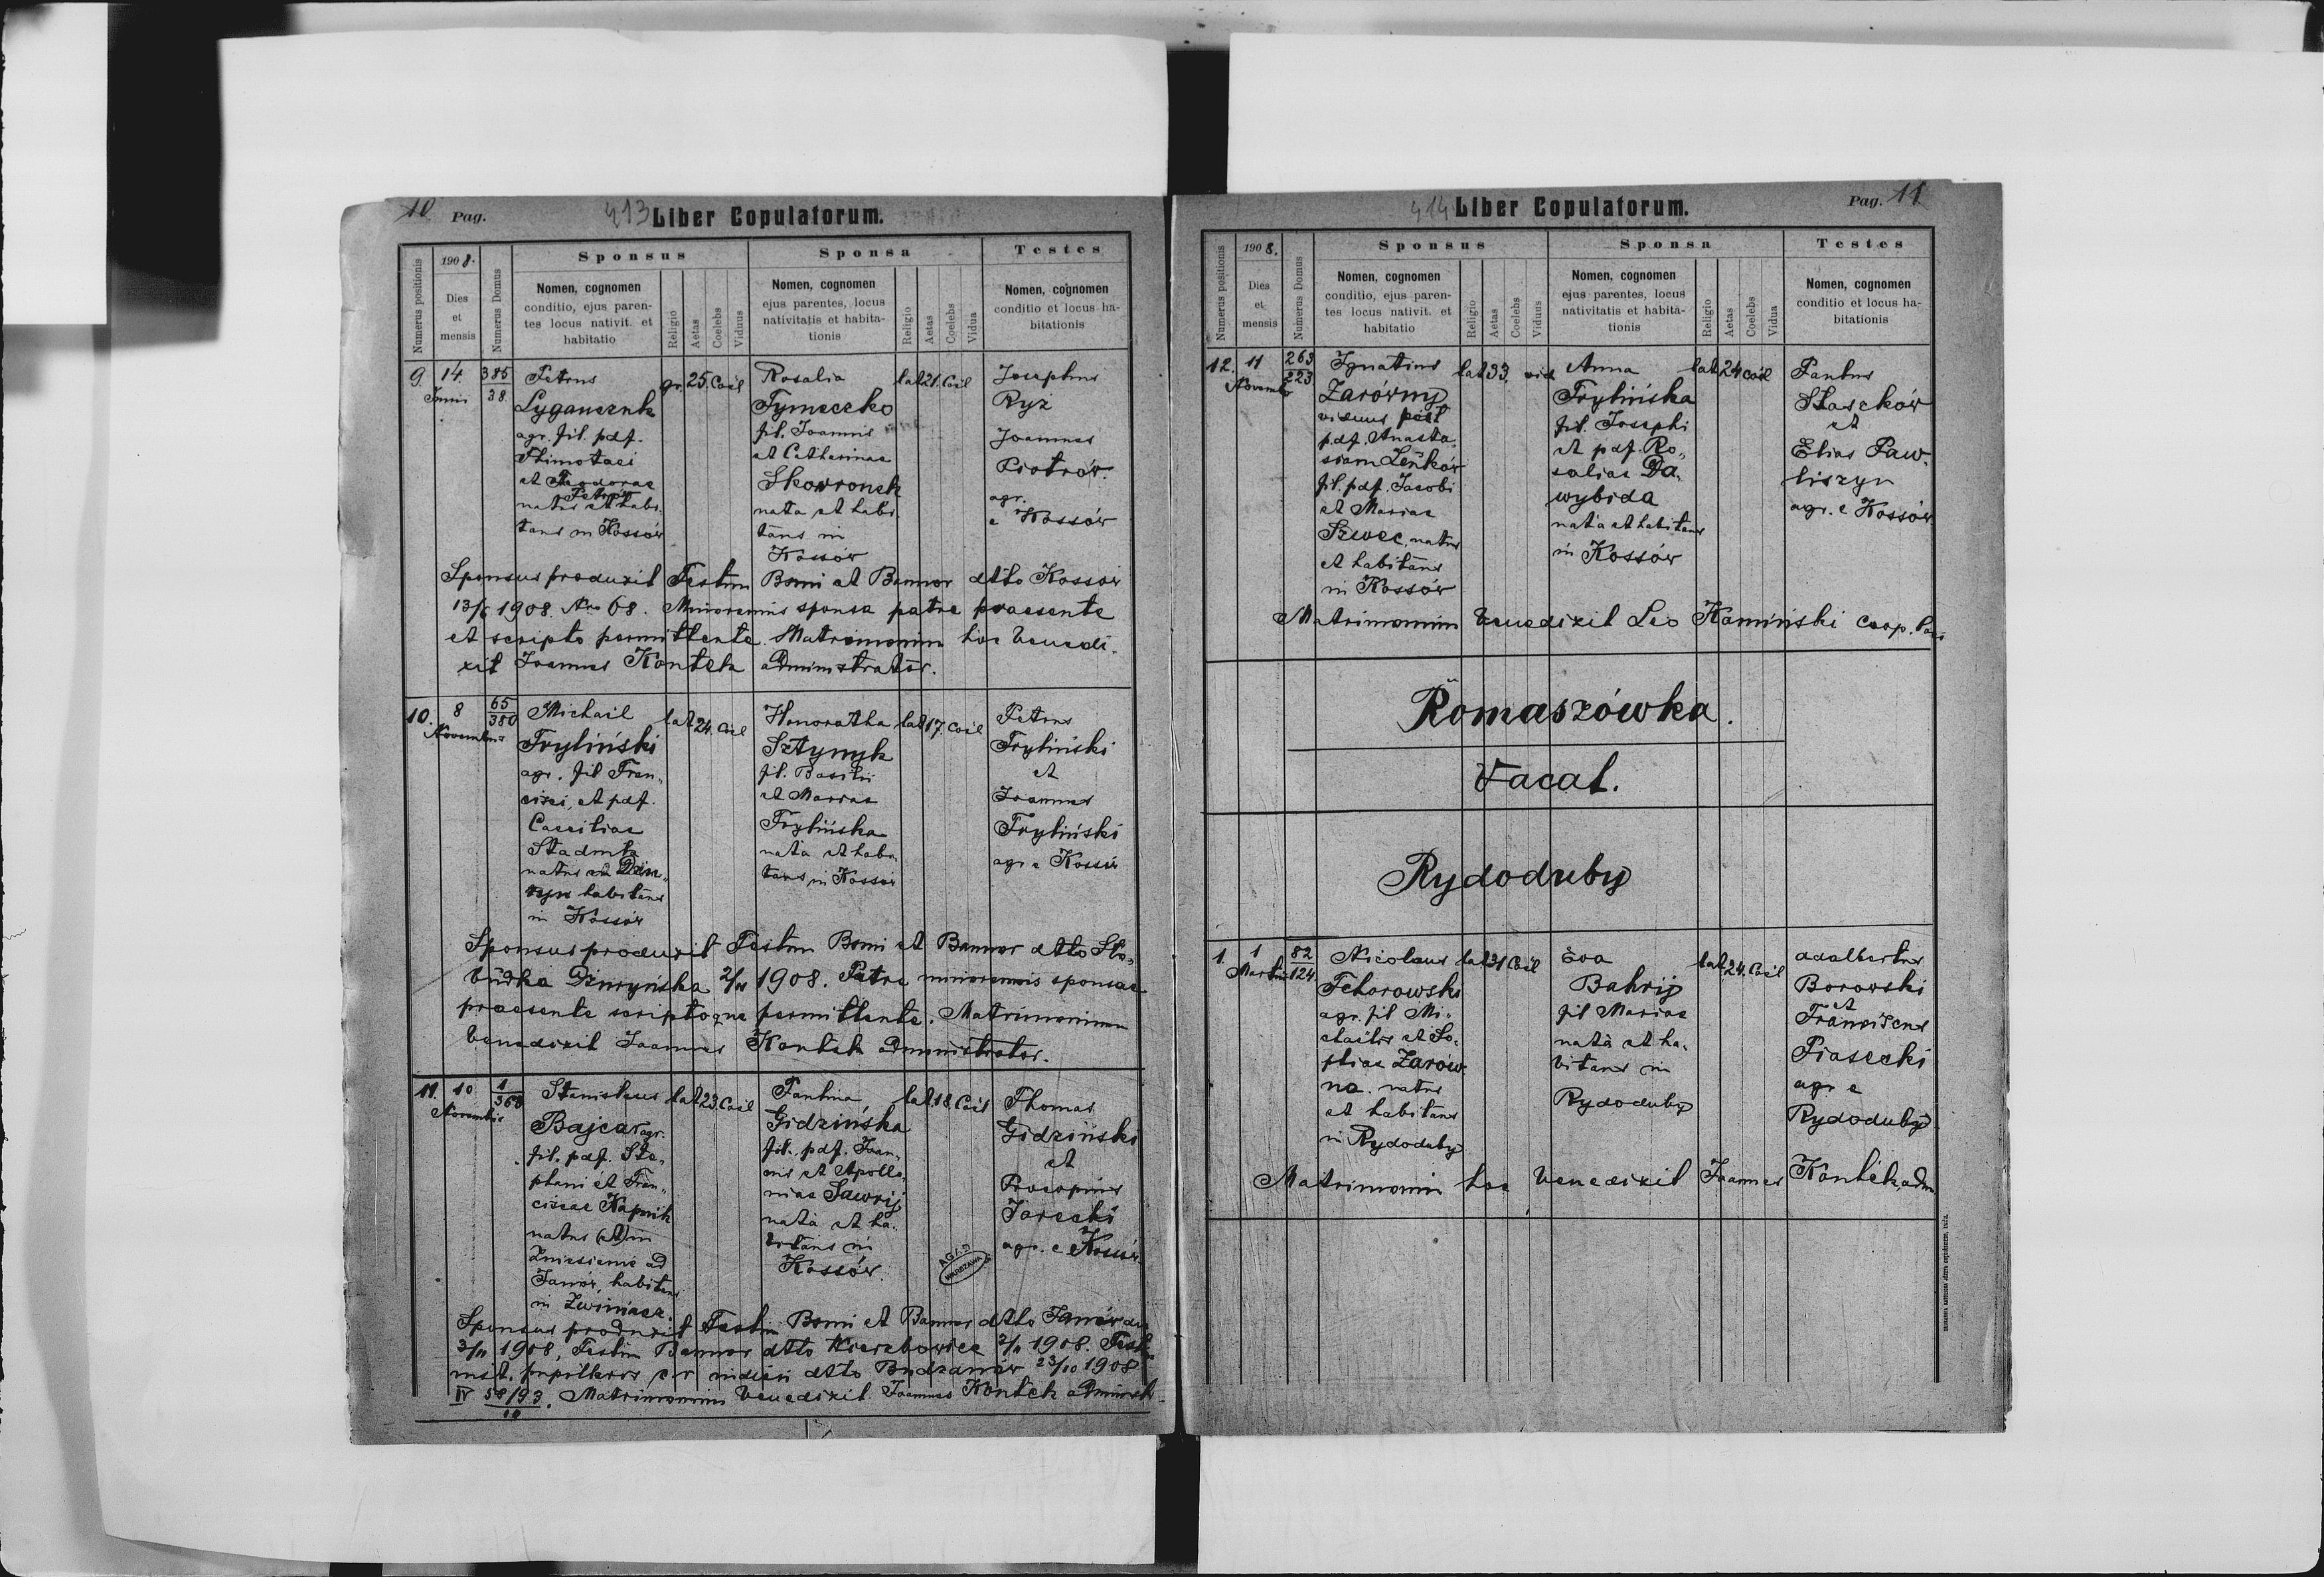 10 Pag. 413 Liber Copulatorum.
Numerus positionis
1908.
Dies
et
mensis
Numerus Domus
Sponsus
Nomen, cognomen
conditio, ejus paren-
tes locus nativit. et
habitatio
Religio
Aetas
Coelebs
Viduus
Sponsa
Nomen, cognomen
ejus parentes, locus
nativitatis et habita-
tionis
Religio
Aetas
Coelebs
Vidua
Testes
Nomen, cognomen
conditio et locus ha-
bitationis
9.
14.
Junii
385
38.
Petrus
Lyganczuk
agr. fil. pdf.
Thimotaei
et Theodorae
Petrów
natus et habi-
tans in Kossów
gr. 25. Coel
Rosalia
Tymeczko
fil. Joannis
et Catharinae
Skowronek
nata et habi
tans in
Kossów
lat 21. Coel
Josephus
Ryż
Joannes
Piotrów.
agr.
e Kossów
Sponsus produxit Testim Bsmi et Bannor dtto Kossów
13/6 1908 Nro 68. Minorennis sponsa patre praesente
et scripto permittente. Matrimonium hoc benedi-
xit Joannes Kontek administrator.
10.
8
Novembris
65
380
Michael
Tryliński
agr. fil Fran-
cisci, et pdf.
Caeciliae
Stadnik
natus
habitans
in Kossów
lat 24. Coel
Honoratha
Sztynyk
fil. Basilii
et Mariae
Trylińska
nata et habi
tans in Kossów
lat 17. Coel
Petrus
Tryliński
et
Joannes
Tryliński
agr e Kossów
Sponsus produxit Testim Bsmi et Bannor dtto Sło-
bódka Dżuryńska 2/11 1908. Patre minorennis sponsae
praesente scriptoque permittente. Matrimonium
benedixit Joannes Kontek administrator.
11.
10
Novembris
1
360
Stanislaus
Bajcar agr.
fil. pdf. Ste-
phani et Fran-
ciscae Kapnik
natus (et) in
Zniesienie ad
Janów, habitans
in Zwiniacz.
lat 23. Coel
Paulina
Gidzińska
fil. pdf. Joan-
nis et Apollo-
niae Sawrij
nata et ha-
bitans in
Kossów.
lat 18. Coel
Thomas
Gidziński
et
Procopius
Jarecki
agr. e Kossów
AGAD
WARSZAWA
Sponsus produxit Testim Bsmi et Bannor dtto Janów
3/11 1908, Testim Bannor dtto Kierzbowiec 2/11 1908. Testi
mst. pupillaris dtto Budzanów 23/10 1908
IV 58/93
10
. Matrimonium benedixit Joannes Kontek administr.
414 Liber Copulatorum. Pag. 11
Numerus positionis
1908.
Dies
et
mensis
Numerus Domus
Sponsus
Nomen, cognomen
conditio, ejus paren-
tes locus nativit. et
habitatio
Religio
Aetas
Coelebs
Viduus
Sponsa
Nomen, cognomen
ejus parentes, locus
nativitatis et habita-
tionis
Religio
Aetas
Coelebs
Vidua
Testes
Nomen, cognomen
conditio et locus ha-
bitationis
12.
11
Novembr
263
223
Ignatius
Zarówny
viduus post
p.df. Anasta-
siam Leńków
fil. pdf. Jacobi
et Mariae
Szwec, natus
et habitans
in Kossów
lat 33. vid
Anna
Trylińska
fil. Josephi
et pdf. Ro-
saliae Da-
wybida
nata et habitans
in Kossów
lat 24 Coel
Paulus
Staszków
et
Elias Paw-
liszyn
agr. e Kossów
Matrimonium benedixit Leo Kamiński Coop. loci
Romaszówka.
Vacat.
Rydoduby
1.
1
Martii
82
124
Nicolaus
Tchorowski
agr. fil Mi-
chaëlis et So-
phiae Zarów
na. natus
et habitans
in Rydoduby
lat 31 Coel
Eva
Bahrij
fil Mariae
nata et ha-
bitans in
Rydoduby
lat 24. Coel
Adalbertus
Borowski
et
Franciscus
Piasecki
agr e
Rydoduby
Matrimonium hoc benedixit Joannes Kontek, adm